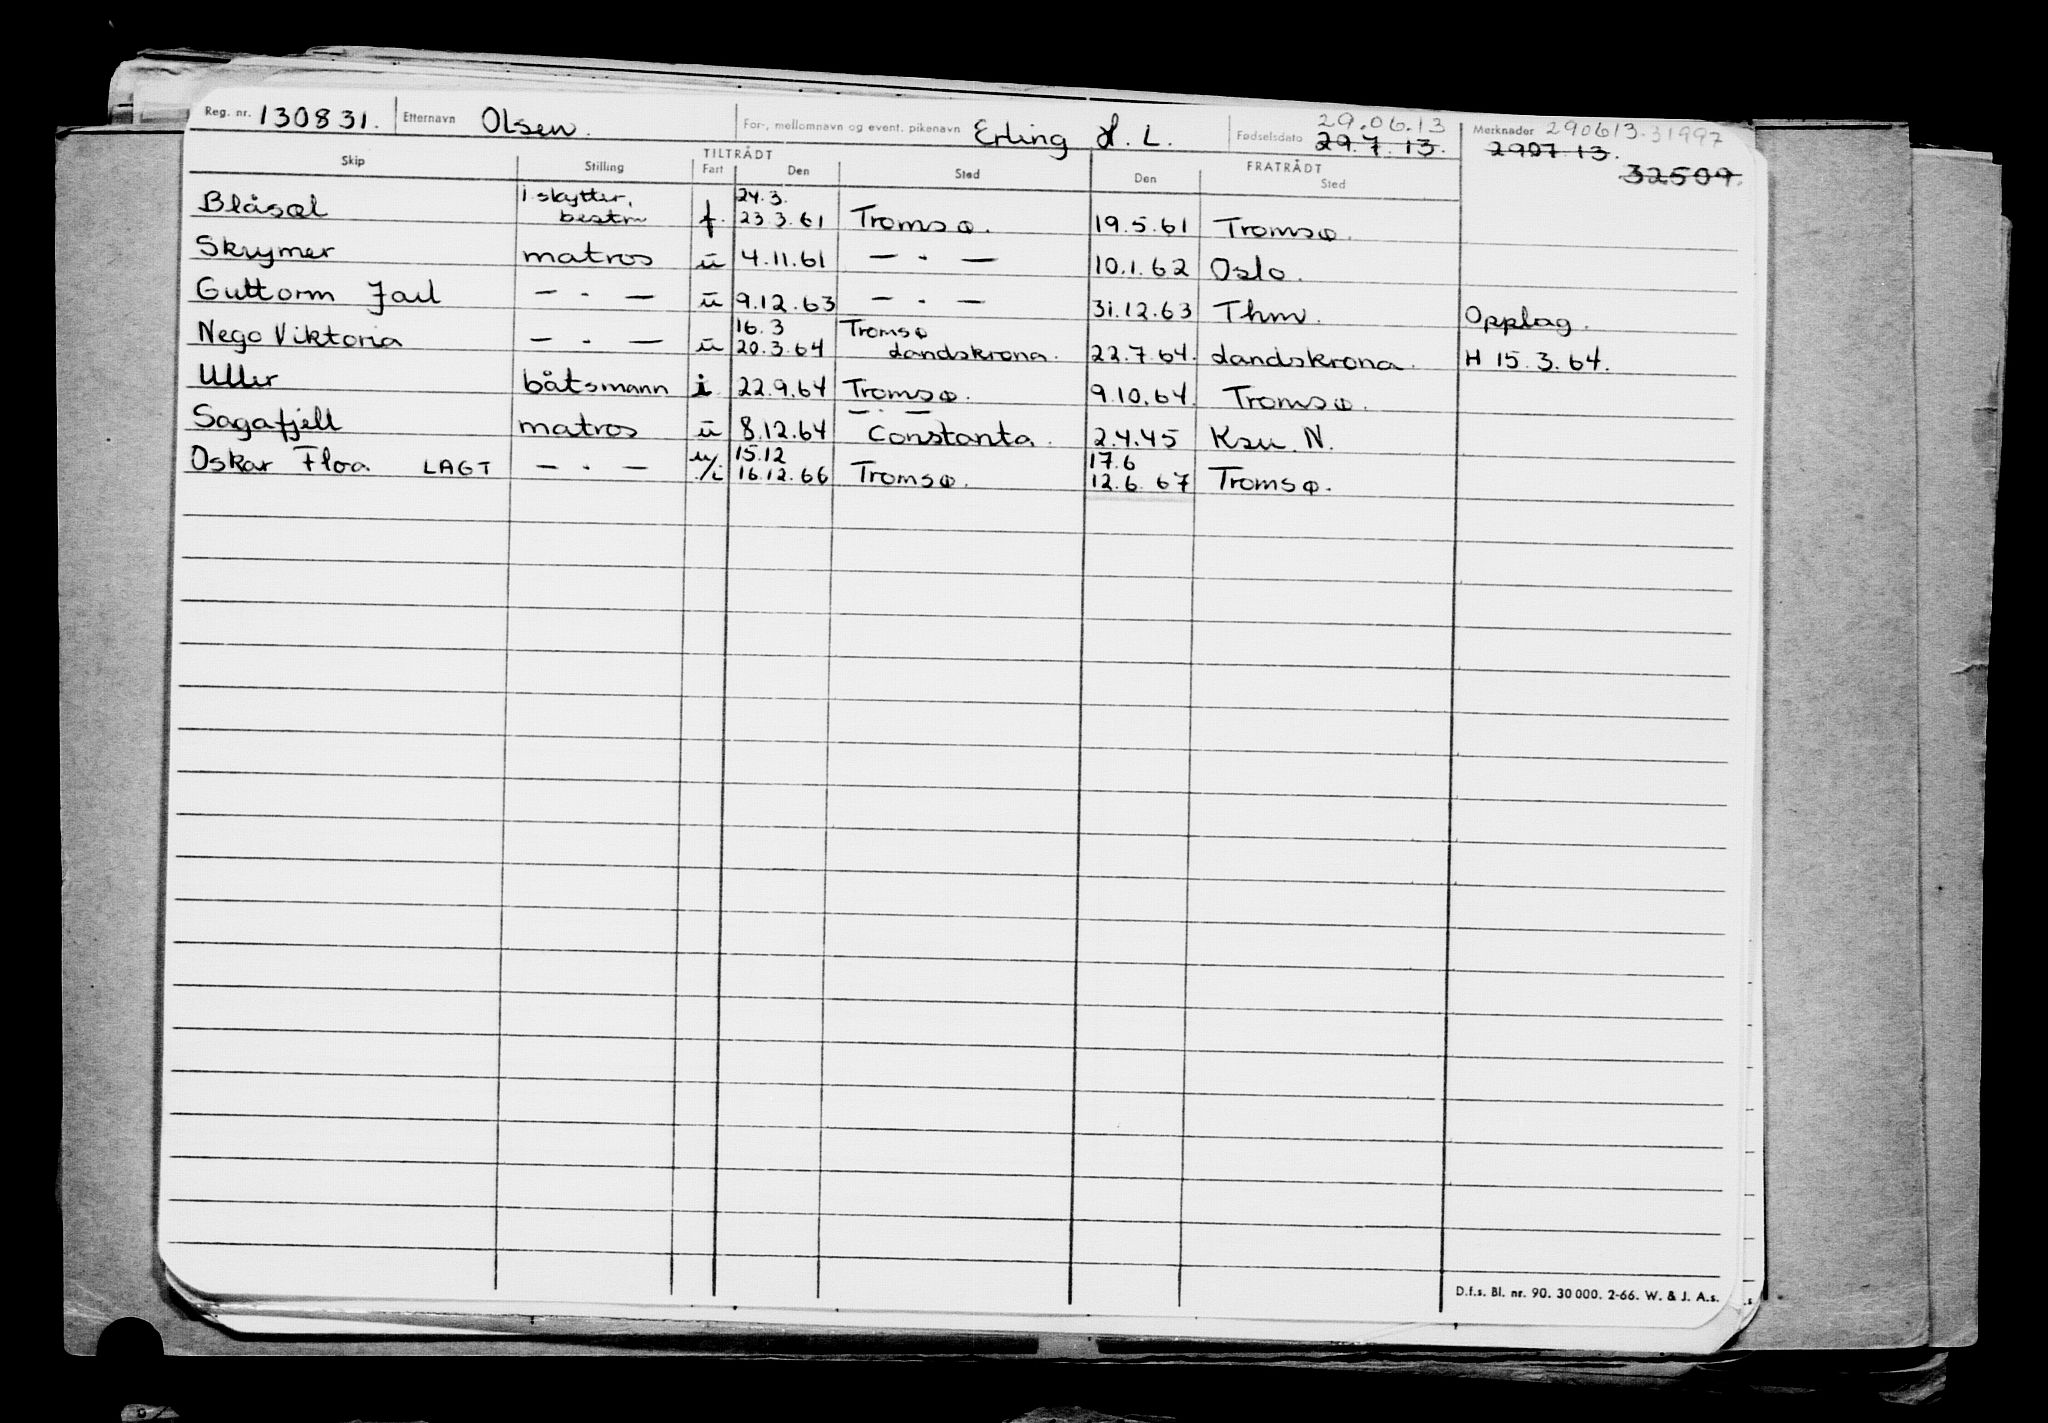 Reg. nr. 130831. Etternavn Olsen. For-, mellomnavn og event. pikenavn Erling H. L. Fødselsdato 29.06.13 29.7.13. Merknader 290613.31997
290713.
32509.
TILTRÅDT FRATRÅDT
Skip Stilling Fart Den Sted Den Sted
Blåsel i skytter, bestm f. 24.3. 23.3.61 Tromsø. 19.5.61 Tromsø.
Skrymer matros u 4.11.61 — · — 10.1.62 Oslo.
Guttorm Jarl — · — u 9.12.63 — · — 31.12.63 Thm. Opplag.
Nego Viktoria — · — u 16.3 20.3.64 Tromsø Landskrona. 22.7.64. Landskrona. H 15.3.64.
Uller båtsmann i. 22.9.64 Tromsø. 9.10.64. Tromsø.
Sagafjell matros u 8.12.64 — · — Constanta. 2.4.45 Ksu. N.
Oskar Floa LAGT — · — u/i 15.12 16.12.66 Tromsø. 17.6 12.6.67 Tromsø.
D.f.s. Bl. nr. 90. 30 000. 2-66. W. & J. A.s.